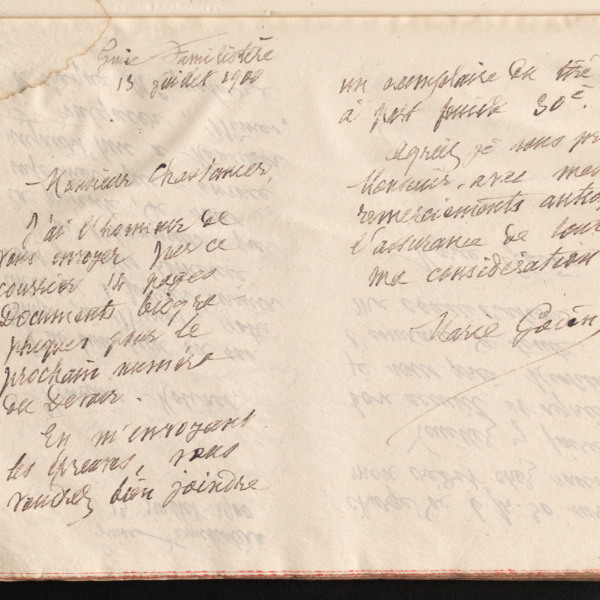 Guise Familistère
13 juillet 1900
Monsieur Charbonnier,
J'ai l'honneur de
vous envoyer par ce
courrier 14 pages
Documents biogra
phiques pour le
prochain numéro
du Devoir.
En m'envoyant
les épreuves, vous
voudrez bien joindre
un exemplaire du
à part 30 c.
Agréez je vous pr
Monsieur, avec mes
remerciements antic
l'assurance de tout
ma considération
Marie Godin